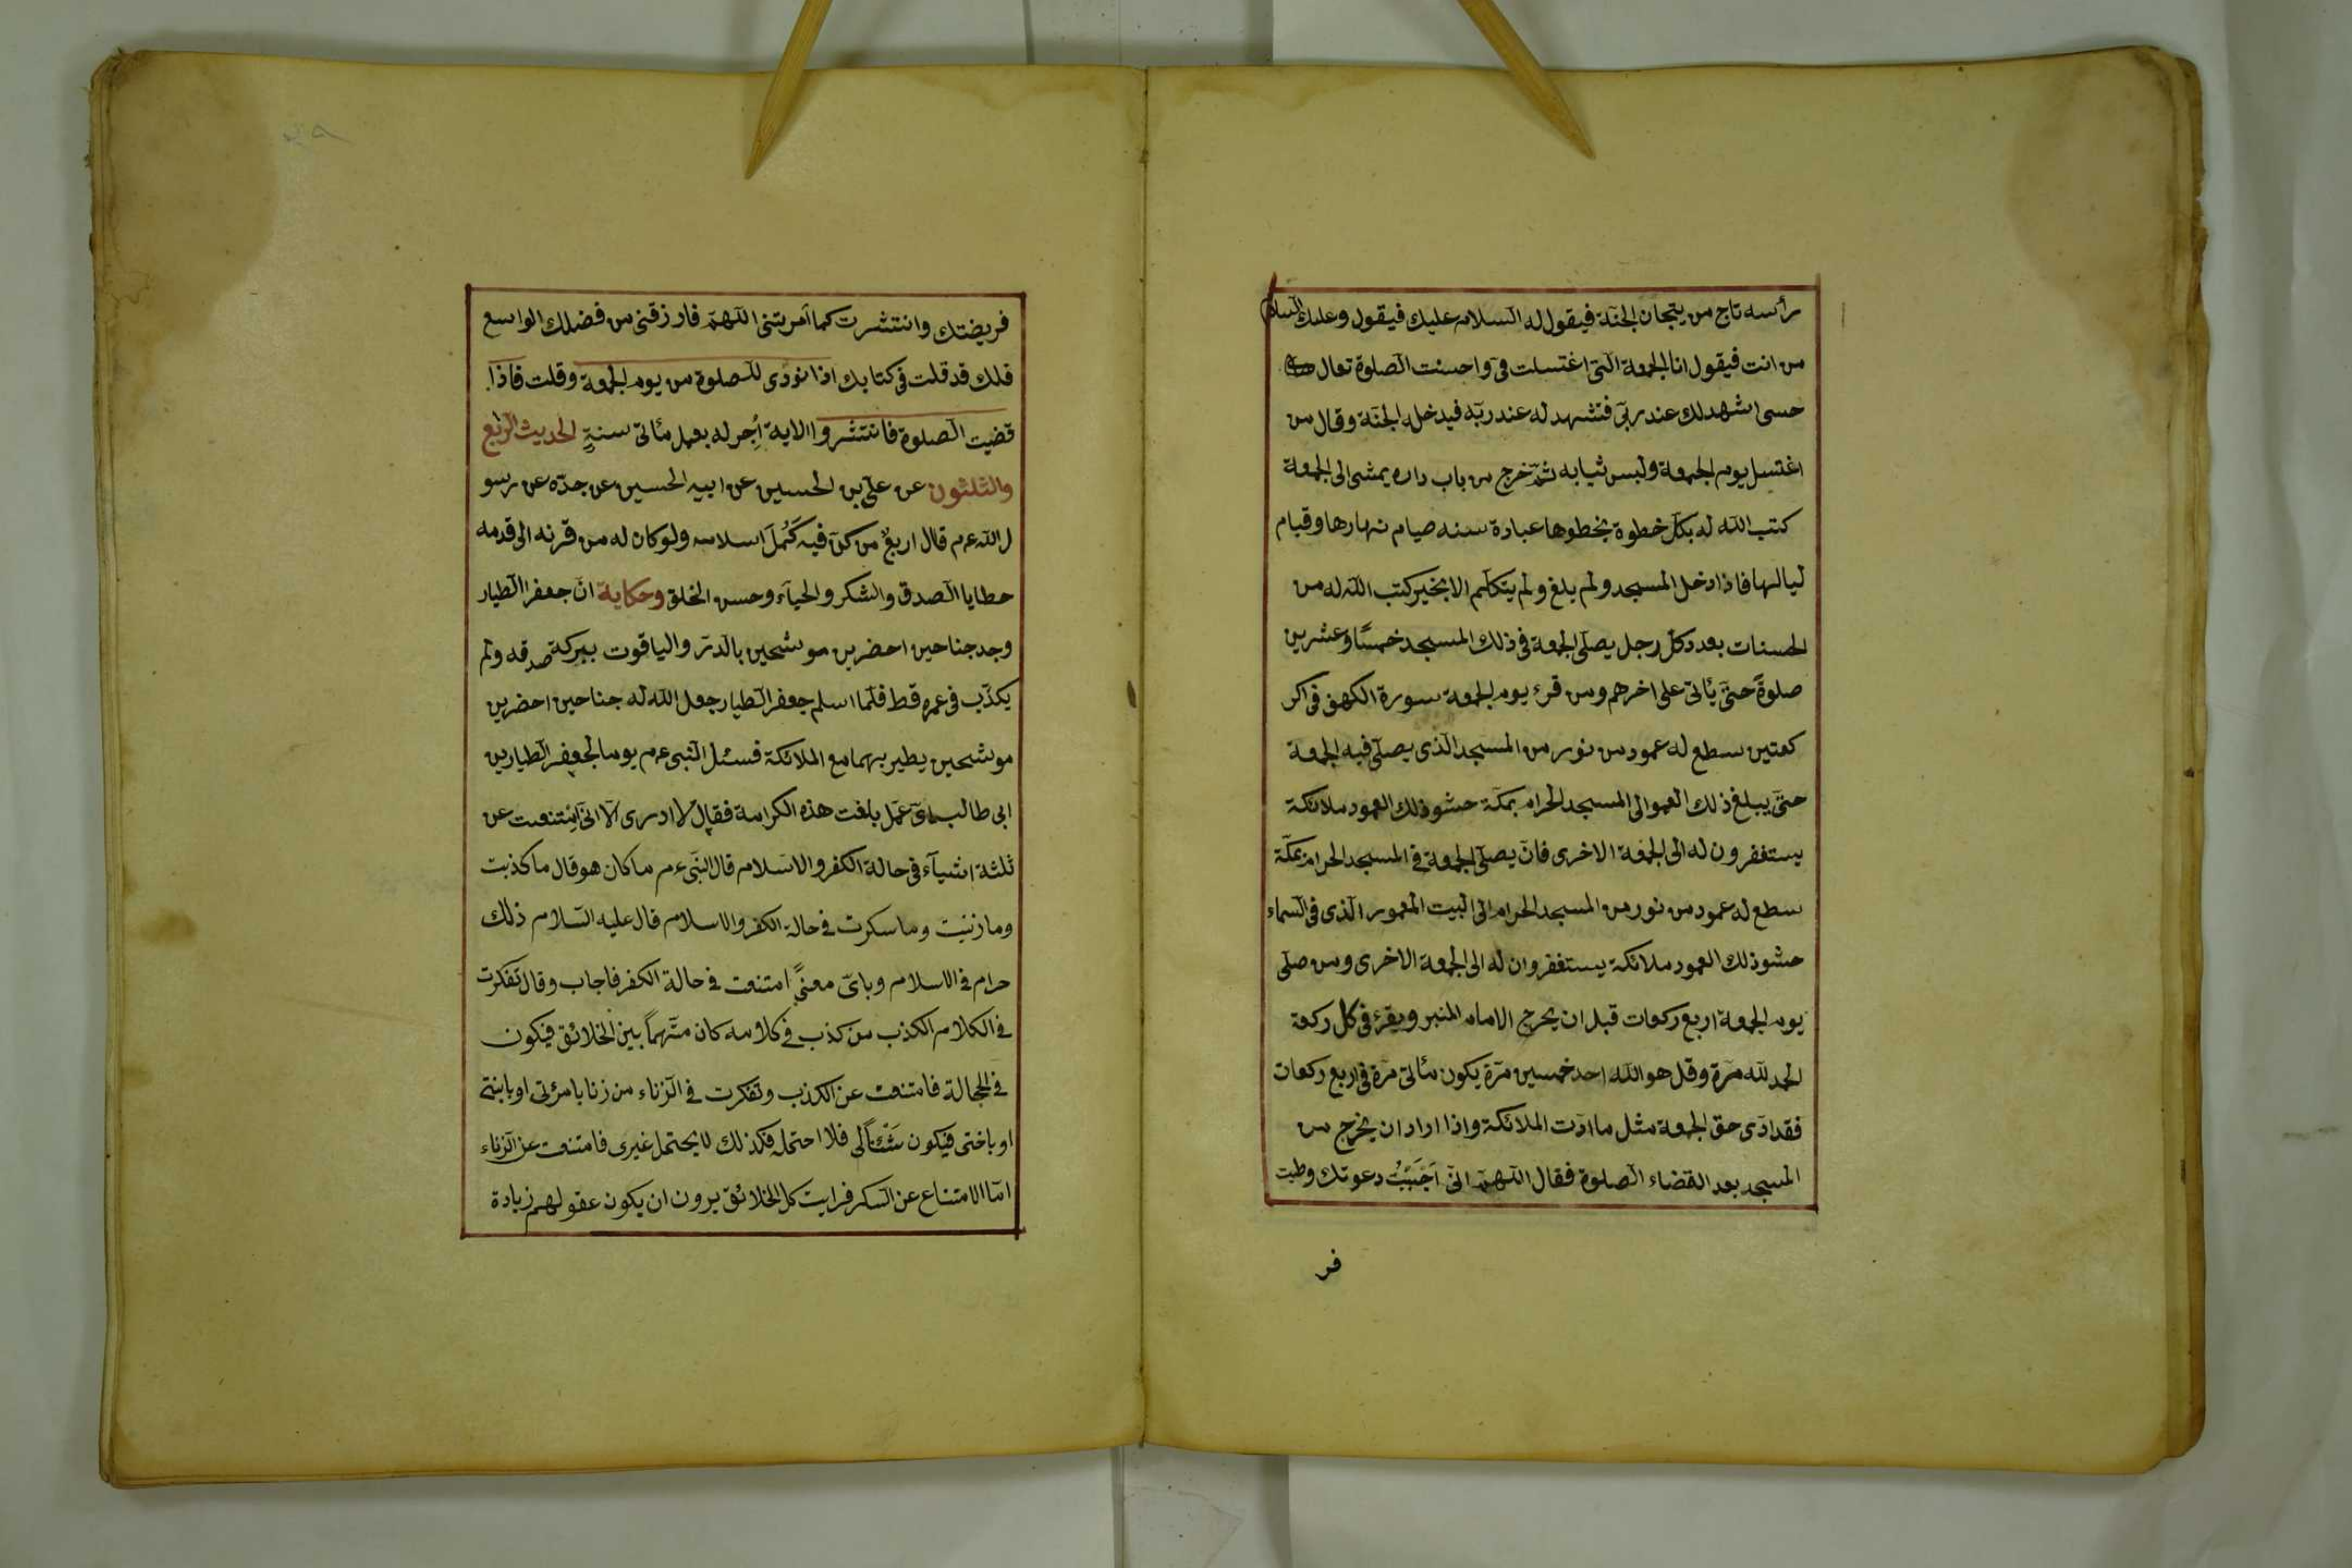 رأسه تاج من يتجان الجنّة فيقول له السلام عليك فيقول وعليك السلام
من انت فيقول انا الجمعة التى اغتسلت فىّ واحسنت الصلوة تعال
حسى اشهد لك عند ربّى فتشهد له عند ربّه فيدخله الجنّة وقال من
اغتسل يوم الجمعة ولبس ثيابه ثمّ خرج من باب داره يمشى الى الجمعة
كتب اللّه له بكلّ خطوة يخطوها عبادة سنه صيام نهارها وقيام
ليالها فاذا دخل المسجد ولم يلغ ولم يتكلّم الا بخير كتب اللّه له من
الحسنات بعدد كلّ رجل يصلّى الجمعة فى ذلك المسجد خمسًا وعشرين
صلوةً حتىّ يأتى على اخرهم ومن قرء يوم الجمعة سورة الكهف فى اكر
كعتين سطع له عمود من نور من المسجد الذى يصلّى فيه الجمعة
حتىّ يبلغ ذلك العموالى المسجد الحرام بمكّة حشو ذلك العمود ملائكة
يستغفرون له الى الجمعة الاخرى فانّ يصلّى الجمعة فى المسجد الحرام بمكّة
سطع له عمود من نور من المسجد الحرام الى البيت المعمور الذى فى السماء
حشو ذلك العمود ملائكة يستغفروان له الى الجمعة الاخرى ومن صلّى
يوم الجمعة اربع ركعات قبل ان يخرج الامام المنبر ويقرء فى كل ركعة
الحمد للّه مرّة وقل هو اللّه احد خمسين مرّة يكون مأتى مرّة فى اربع ركعات
فقد ادّى حق الجمعة مثل ما ادّت الملائكة واذا اراد ان يخرج من
المسجد بعد القضاء الصلوة فقال اللّهمّ انّى اَجَبْتُ دعوتك وصليت
فر
فريضتك وانتشرت كما اَمرتنى اللّهمّ فارزقنى من فضلك الواسع
فلك قد قلت فى كتابك اذا نودى للصلوة من يوم الجمعة وقلت فاذا
قضيت الصلوة فانتشروا الاية اُجر له بعمل مأتى سنةٍ الحديث الرابع
والثلثون عن علىّ بن الحسين عن ابيه الحسين عن جدّه عن رسو
ل اللّه عم قال اربعٌ من كنّ فيه كَمُلَ اسلامه ولو كان له من قرنه الى قدمه
خطايا الصدق والشكر والحياء وحسن الخلق وحكاية انّ جعفر الطيار
وجد جناحين اخضرين موشحين بالدرّ والياقوت ببركة صدقه ولم
يكذّب فى عمره قط فلمّا اسلم جعفر الطيار جعل اللّه له جناحين اخضرين
موشحين يطير بهما مع الملائكة فسئل النّبى عم يوما لجعفر الطيار بن
ابى طالب باىّ عمل بلغت هذه الكرامة فقال لا ادرى الّا انّى امتنعت عن
ثلثة اشياء فى حالة الكفر والاسلام قال النّبى عم ما كان هو قال ما كذبت
وما زنيت وما سكرت فى حالة الكفر والاسلام قال عليه السّلام ذلك
حرام فى الاسلام وباىّ معنىً امتنعت فى حالة الكفر فاجاب وقال تفكرت
فى الكلام الكذب من كذب فى كلامه كان متّهماً بين الخلائق فيكون
فى الجالة فامتنعت عن الكذب وتفكرت فى الزناء من زنا بامرئتى او بابنتى
او باختى فيكون شَئْناً لى فلا احتمله فكذلك لا يحتمل غيرى فامتنعت عن الزناء
امّا الامتناع عن السكر فرايت كل الخلائق يرون ان يكون عقولهم زيادة